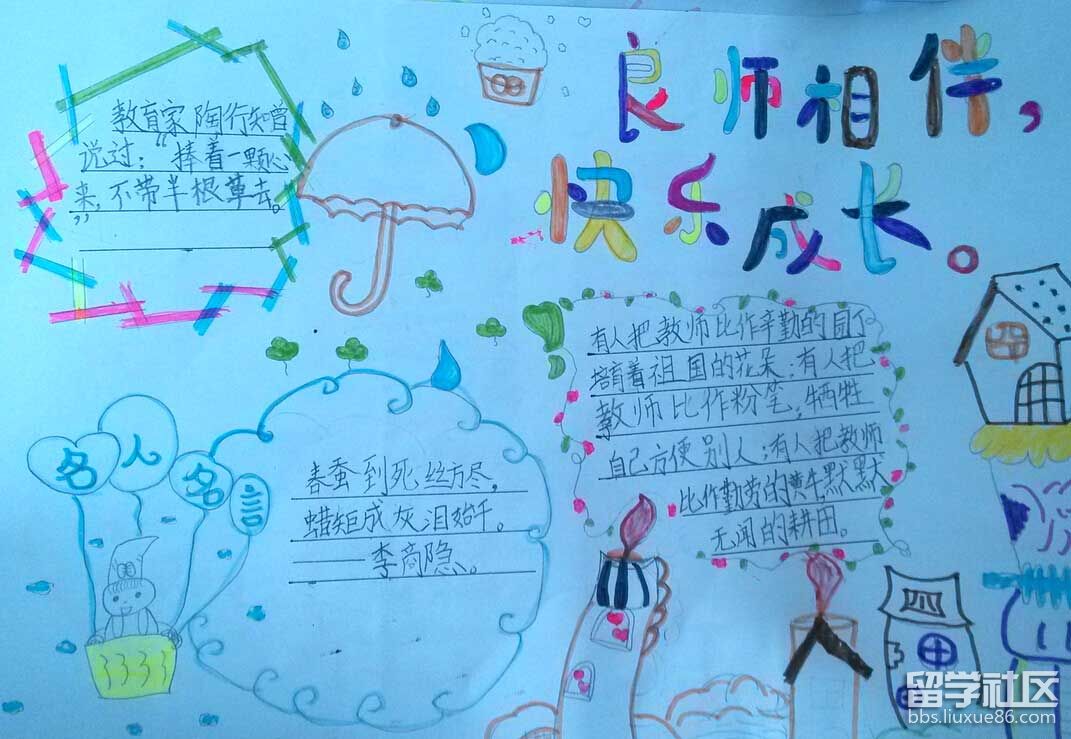 良师相伴，
快乐成长。
教育家陶行知曾
说过：“捧着一颗心
来，不带半根草去。
”
有人把教师比作辛勤的园丁
培育着祖国的花朵；有人把
教师比作粉笔，牺牲
自己方便别人；有人把教师
比作勤劳的黄牛默默
无闻的耕田。
名人名言
春蚕到死丝方尽，
蜡炬成灰泪始干。
——李商隐。
留学社区
bbs.liuxue86.com